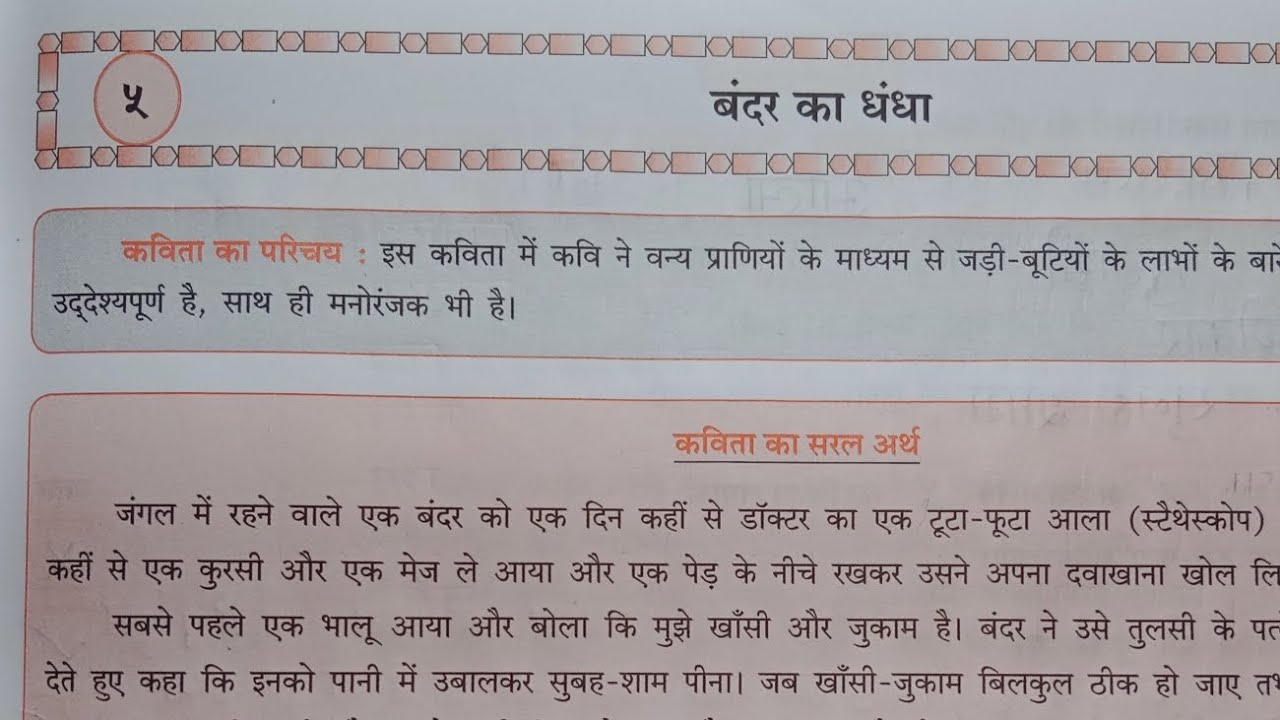 ५
बंदर का धंधा
कविता का परिचय : इस कविता में कवि ने वन्य प्राणियों के माध्यम से जड़ी-बूटियों के लाभों के
उद्देश्यपूर्ण है, साथ ही मनोरंजक भी है।
कविता का सरल अर्थ
जंगल में रहने वाले एक बंदर को एक दिन कहीं से डॉक्टर का एक टूटा-फूटा आला (स्टेथेस्कोप)
कहीं से एक कुरसी और एक मेज ले आया और एक पेड़ के नीचे रखकर उसने अपना दवाखाना खोल
सबसे पहले एक भालू आया और बोला कि मुझे खाँसी और जुकाम है। बंदर ने उसे तुलसी के
देते हुए कहा कि इनको पानी में उबालकर सुबह-शाम पीना। जब खाँसी-जुकाम बिलकुल ठीक हो जाए